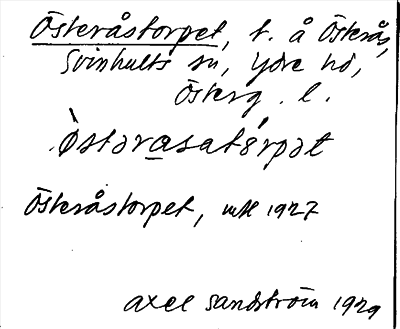 Österåstorpet, t. å Österås,
Svinhults sn, Ydre hd,
Österg. l.
Österåstorpet, mtl 1927
Axel Sandström 1929